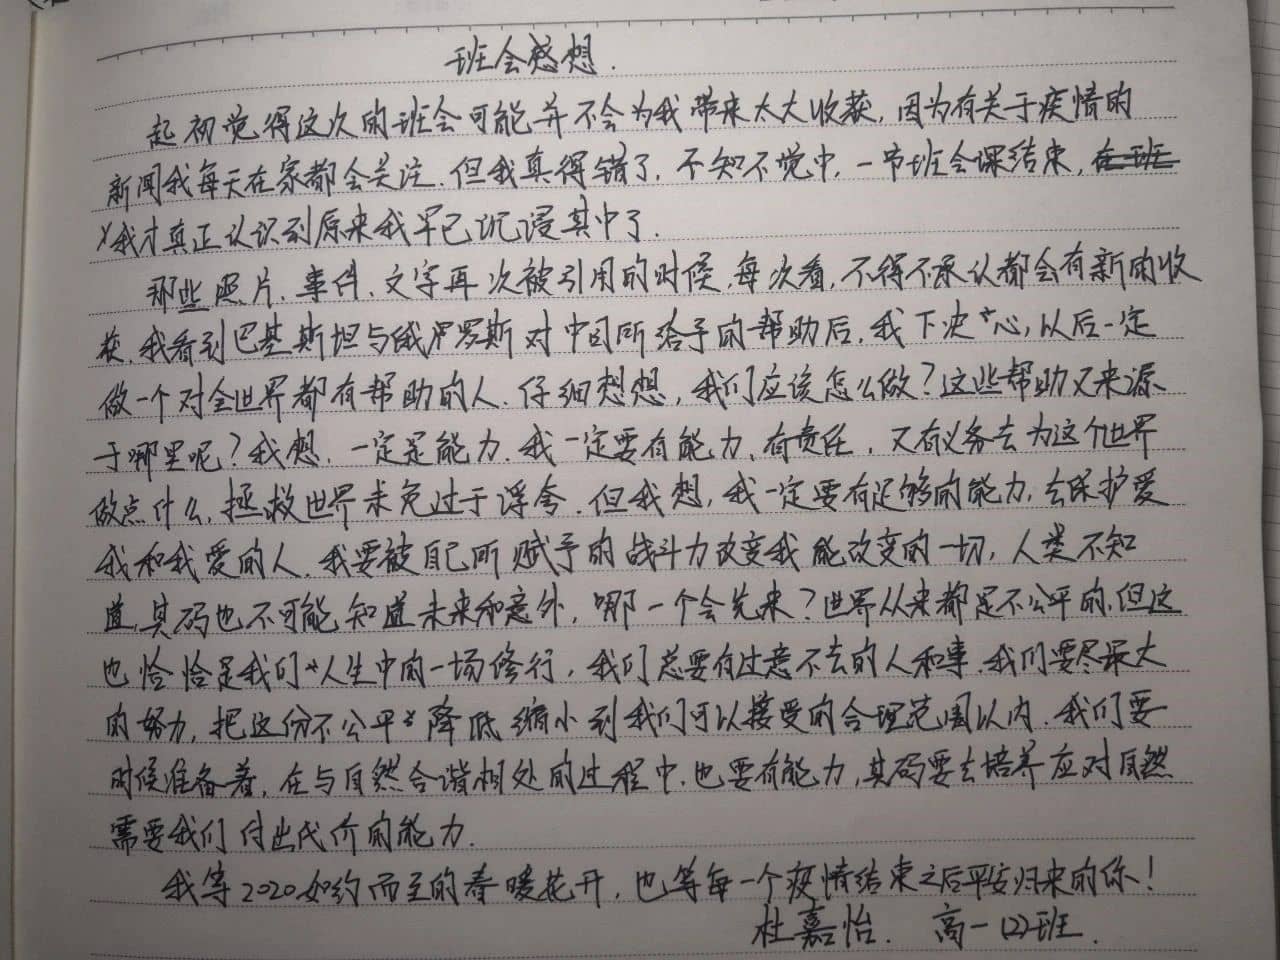 班会感想.
起初觉得这次的班会可能并不会为我带来太大收获,因为有关于疫情的
新闻我每天在家都会关注.但我真得错了,不知不觉中,一节班会课结束,在班
我才真正认识到原来我早已沉浸其中了.
那些照片、事件、文字再次被引用的时候,每次看,不得不承认都会有新的收
获.我看到巴基斯坦与俄罗斯对中国所给予的帮助后,我下决心,以后一定
做一个对全世界都有帮助的人.仔细想想,我们应该怎么做?这些帮助又来源
于哪里呢?我想,一定是能力.我一定要有能力、有责任,又有义务去为这个世界
做点什么,拯救世界未免过于浮夸.但我想,我一定要有足够的能力,去保护爱
我和我爱的人.我要被自己所赋予的战斗力改变我能改变的一切,人类不知
道,其码也不可能知道未来和意外,哪一个会先来?世界从来都是不公平的,但这
也恰恰是我们人生中的一场修行,我们总要有过意不去的人和事.我们要尽最大
的努力,把这份不公平降低缩小到我们可以接受的合理范围以内.我们要
时候准备着,在与自然合谐相处的过程中,也要有能力,其码要去培养应对自然
需要我们付出代价的能力.
我等2020如约而至的春暖花开,也等每一个疫情结束之后平安归来的你!
杜嘉怡. 高一(2)班.